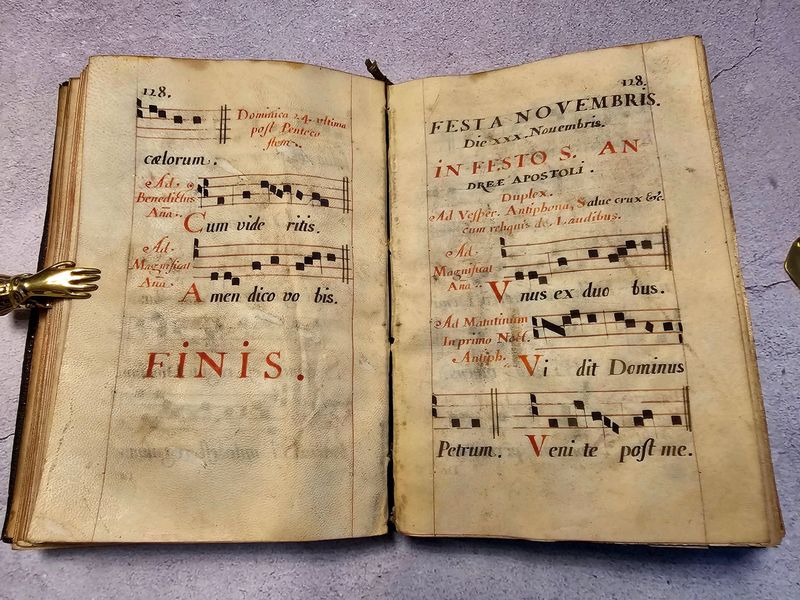 128.
Dominica 24. ultima
post Penteco
stem.
cælorum.
Ad
Benedictus
Ana.
Cum vide ritis.
Ad
Magnificat
Ana.
Amen dico vo bis.
FINIS.
128.
FESTA NOVEMBRIS.
Die XXX. Nouembris.
IN FESTO S. AN
DREÆ APOSTOLI.
Duplex.
Ad Vesper. Antiphona, Salue crux &c.
cum reliquis de Laudibus.
Ad
Magnificat
Ana.
Vnus ex duo bus.
Ad Matutinum
In primo Noct.
Antiph.
Vi dit Dominus
Petrum. Veni te post me.